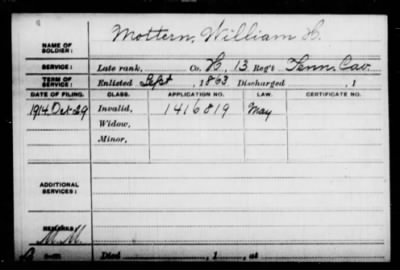 NAME OF SOLDIER: Mottern, William H.
SERVICE: Late rank, Co. H, 13 Reg't Tenn. Cav.
TERM OF SERVICE: Enlisted Sept , 1863 Discharged , 1
DATE OF FILING. CLASS. APPLICATION NO. LAW. CERTIFICATE NO.
1914 Oct-29 Invalid, 1416819 May
Widow,
Minor,
ADDITIONAL SERVICES:
REMARKS:
M.M.
Died , 1 , at